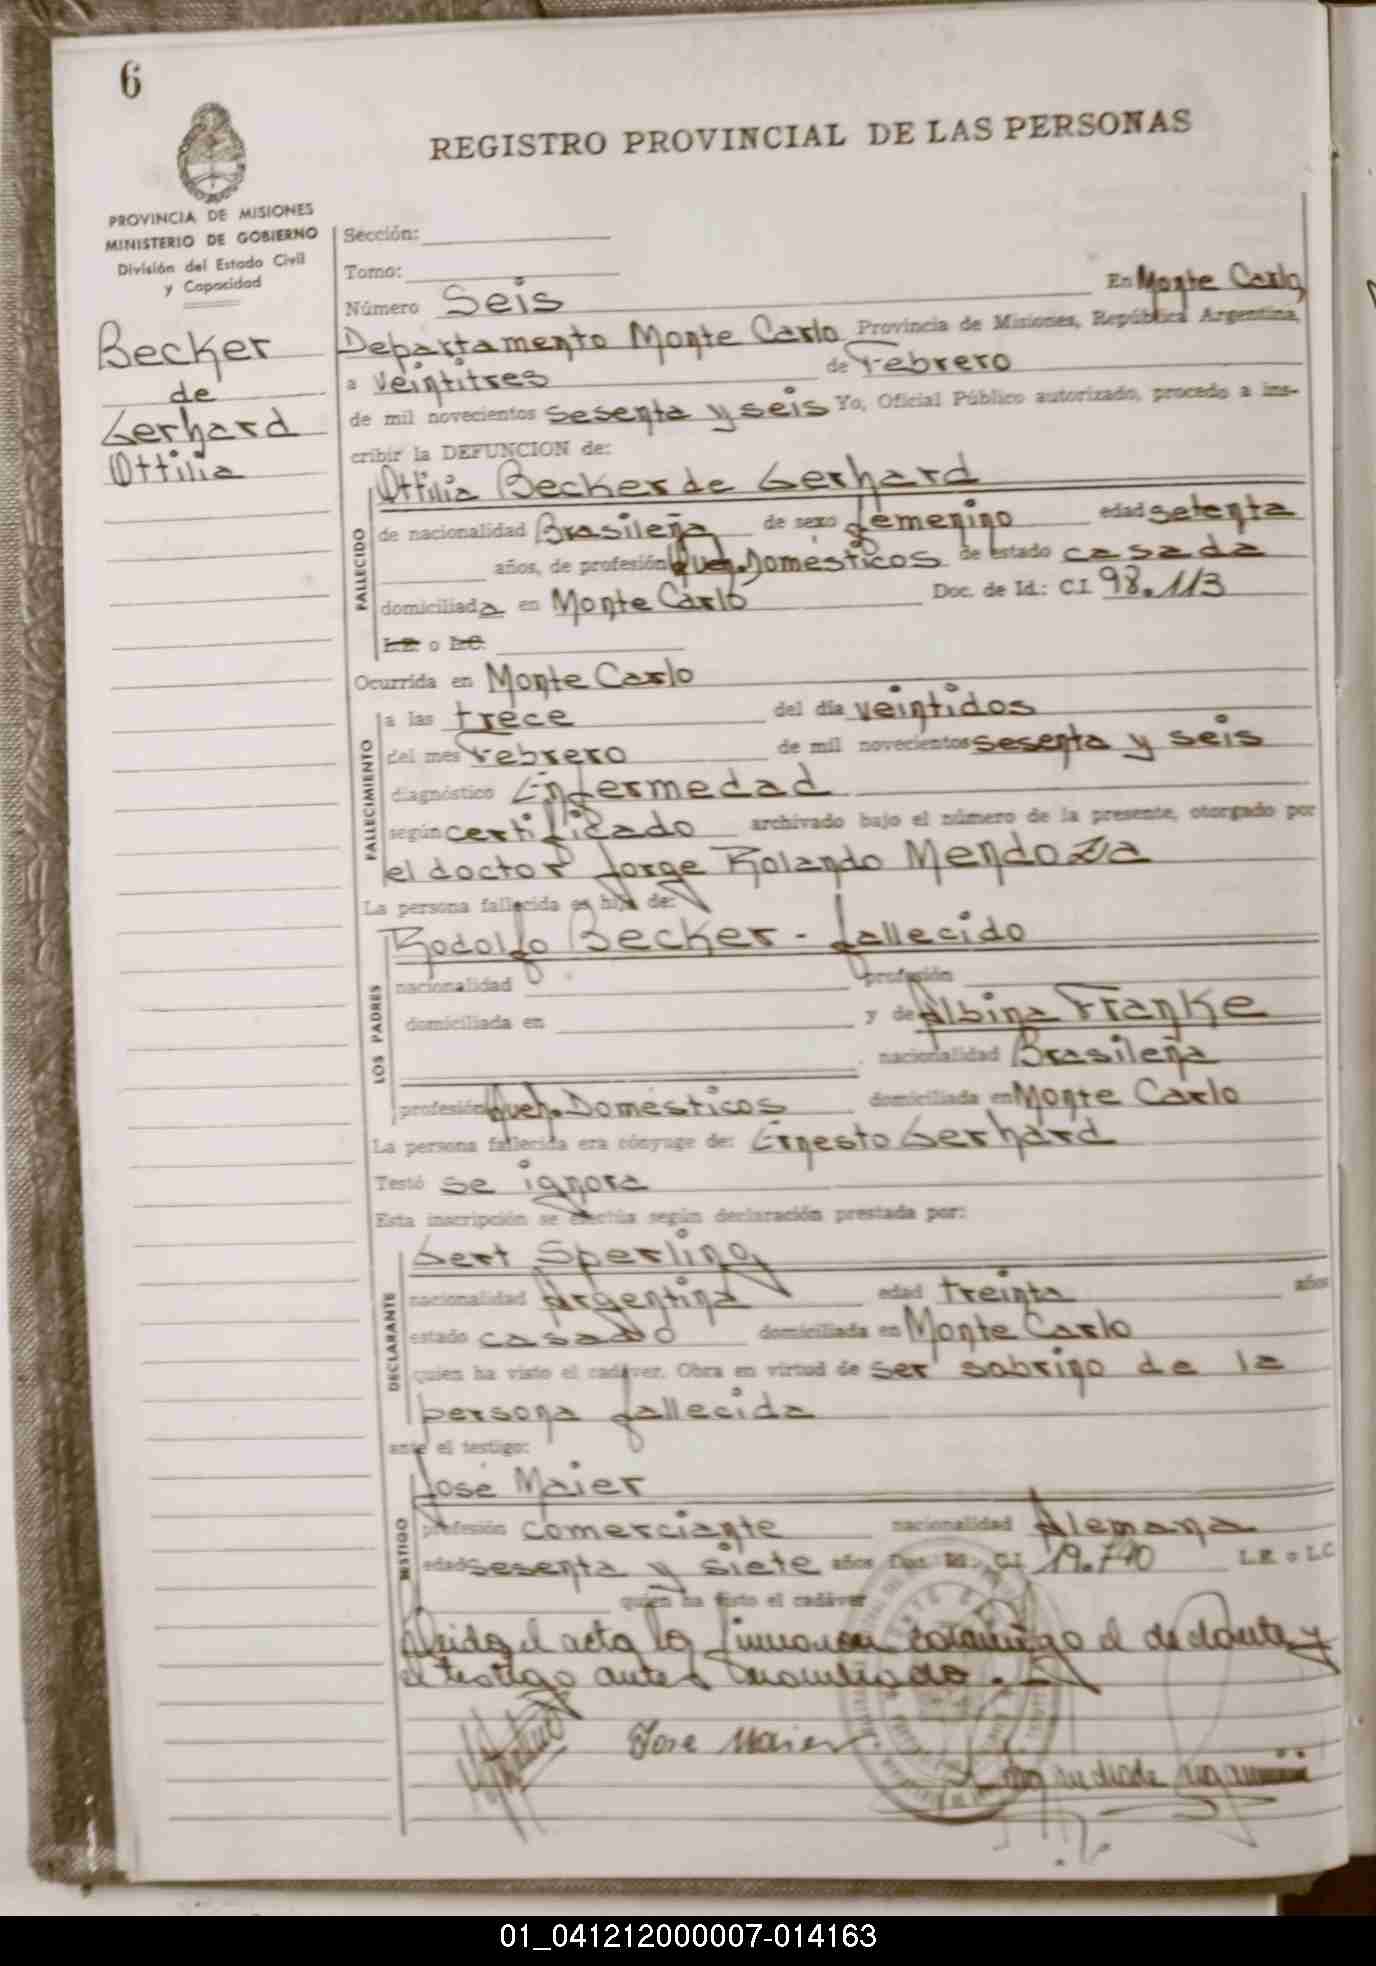 6
REGISTRO PROVINCIAL DE LAS PERSONAS
PROVINCIA DE MISIONES
MINISTERIO DE GOBIERNO
División del Estado Civil
y Capacidad
Becker
de
Gerhard
Ottilia
Sección:
Tomo:
Número Seis En Monte Carlo,
Departamento Monte Carlo Provincia de Misiones, República Argentina,
a veintitres de Febrero
de mil novecientos sesenta y seis Yo, Oficial Público autorizado, procedo a ins-
cribir la DEFUNCION de:
FALLECIDO
Ottilia Becker de Gerhard
de nacionalidad Brasileña de sexo femenino edad setenta
años, de profesión Queh. Domésticos de estado casada
domiciliada en Monte Carlo Doc. de Id.: C.I. 98.113
L.E. o L.C.
Ocurrida en Monte Carlo
FALLECIMIENTO
a las trece del día veintidos
del mes Febrero de mil novecientos sesenta y seis
diagnóstico Enfermedad
según certificado archivado bajo el número de la presente, otorgado por
el doctor Jorge Rolando Mendoza
La persona fallecida es hija de:
LOS PADRES
Rodolfo Becker - fallecido
nacionalidad profesión
domiciliada en y de Albina Franke
nacionalidad Brasileña
profesión Queh. Domésticos domiciliada en Monte Carlo
La persona fallecida era cónyuge de: Ernesto Gerhard
Testó se ignora
Esta inscripción se efectúa según declaración prestada por:
DECLARANTE
Gert Sperling
nacionalidad Argentina edad treinta años
estado casado domiciliada en Monte Carlo
quien ha visto el cadáver. Obra en virtud de ser sobrino de la
persona fallecida
ante el testigo:
TESTIGO
José Maier
profesión comerciante nacionalidad Alemana
edad sesenta y siete años Doc. Id.: C.I. 19.740 L.E. o L.C.
quien ha visto el cadáver
Leida el acta la firmaron conmigo el declarante y
el testigo antes nombrado.
Jose Maier
01_041212000007-014163